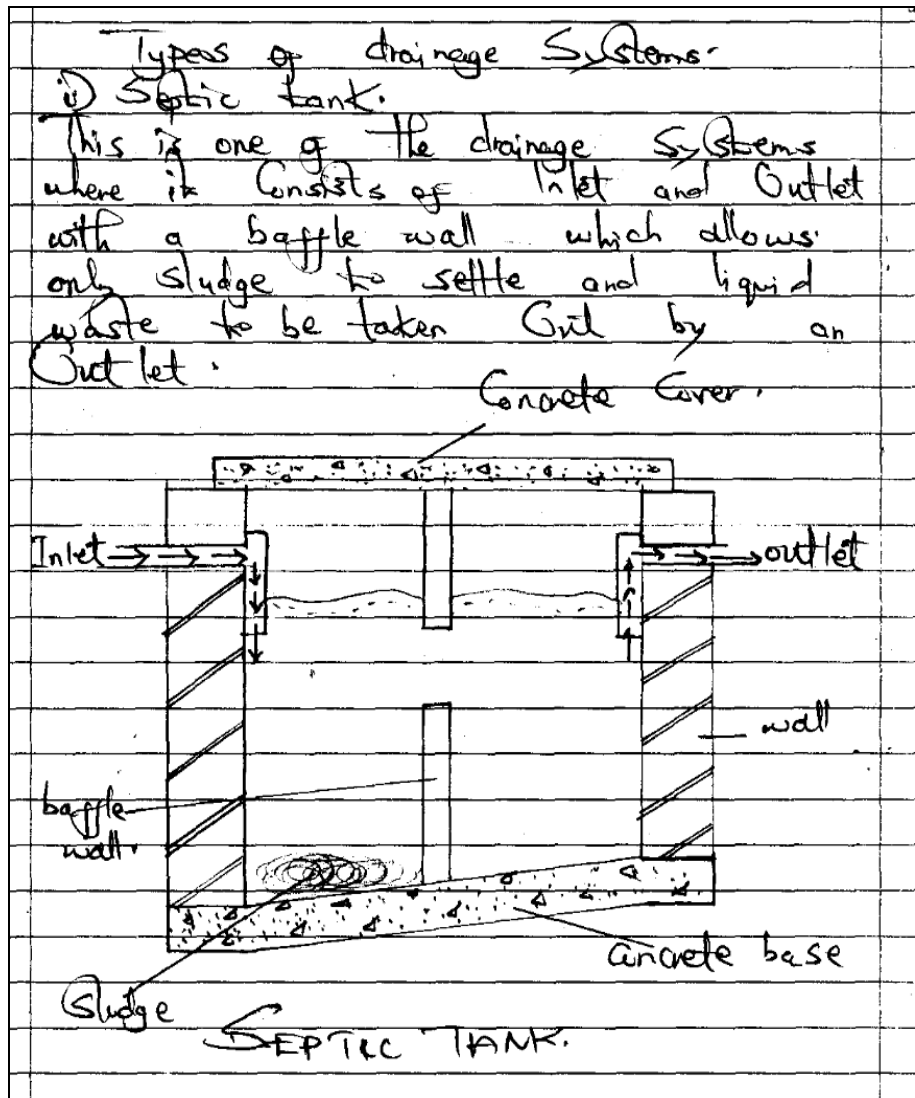 Types of drainage Systems.
i) Septic tank.
This is one of the drainage Systems
where it Consists of Inlet and Outlet
with a baffle wall which allows
only sludge to settle and liquid
waste to be taken Out by an
Outlet.
Concrete Cover.
Inlet
outlet
wall
baffle
wall.
concrete base
Sludge
SEPTIC TANK.